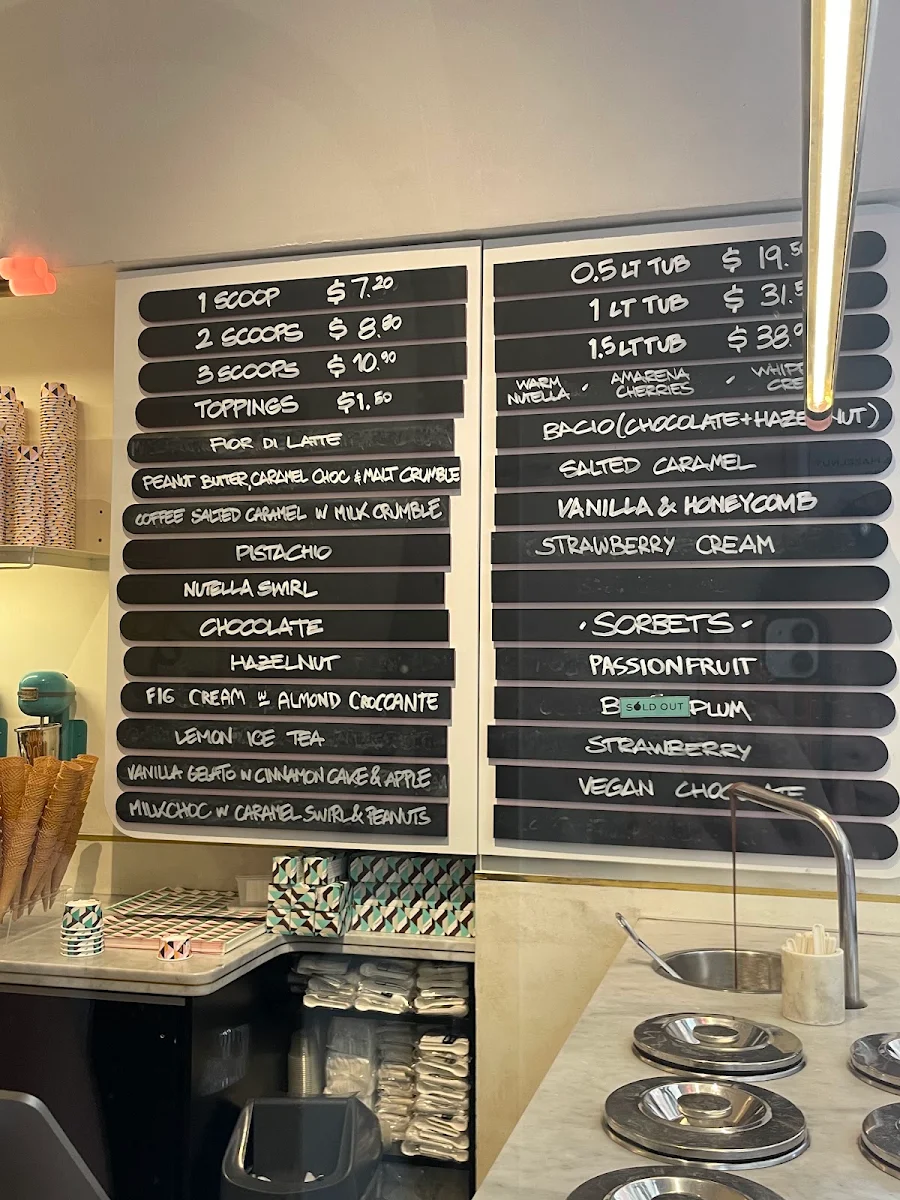 1 SCOOP $7.20
2 SCOOPS $8.80
3 SCOOPS $10.90
TOPPINGS $1.50
FIOR DI LATTE
PEANUT BUTTER, CARAMEL CHOC & MALT CRUMBLE
COFFEE SALTED CARAMEL W MILK CRUMBLE
PISTACHIO
NUTELLA SWIRL
CHOCOLATE
HAZELNUT
FIG CREAM W ALMOND CROCCANTE
LEMON ICE TEA
VANILLA GELATO W CINNAMON CAKE & APPLE
MILKCHOC W CARAMEL SWIRL & PEANUTS
0.5 LT TUB $19.50
1 LT TUB $31.5
1.5 LT TUB $38.
WARM NUTELLA · AMARENA CHERRIES ·
BACIO (CHOCOLATE + HAZELNUT)
SALTED CARAMEL
VANILLA & HONEYCOMB
STRAWBERRY CREAM
· SORBETS ·
PASSIONFRUIT
SOLD OUT PLUM
STRAWBERRY
VEGAN CHOCOLATE